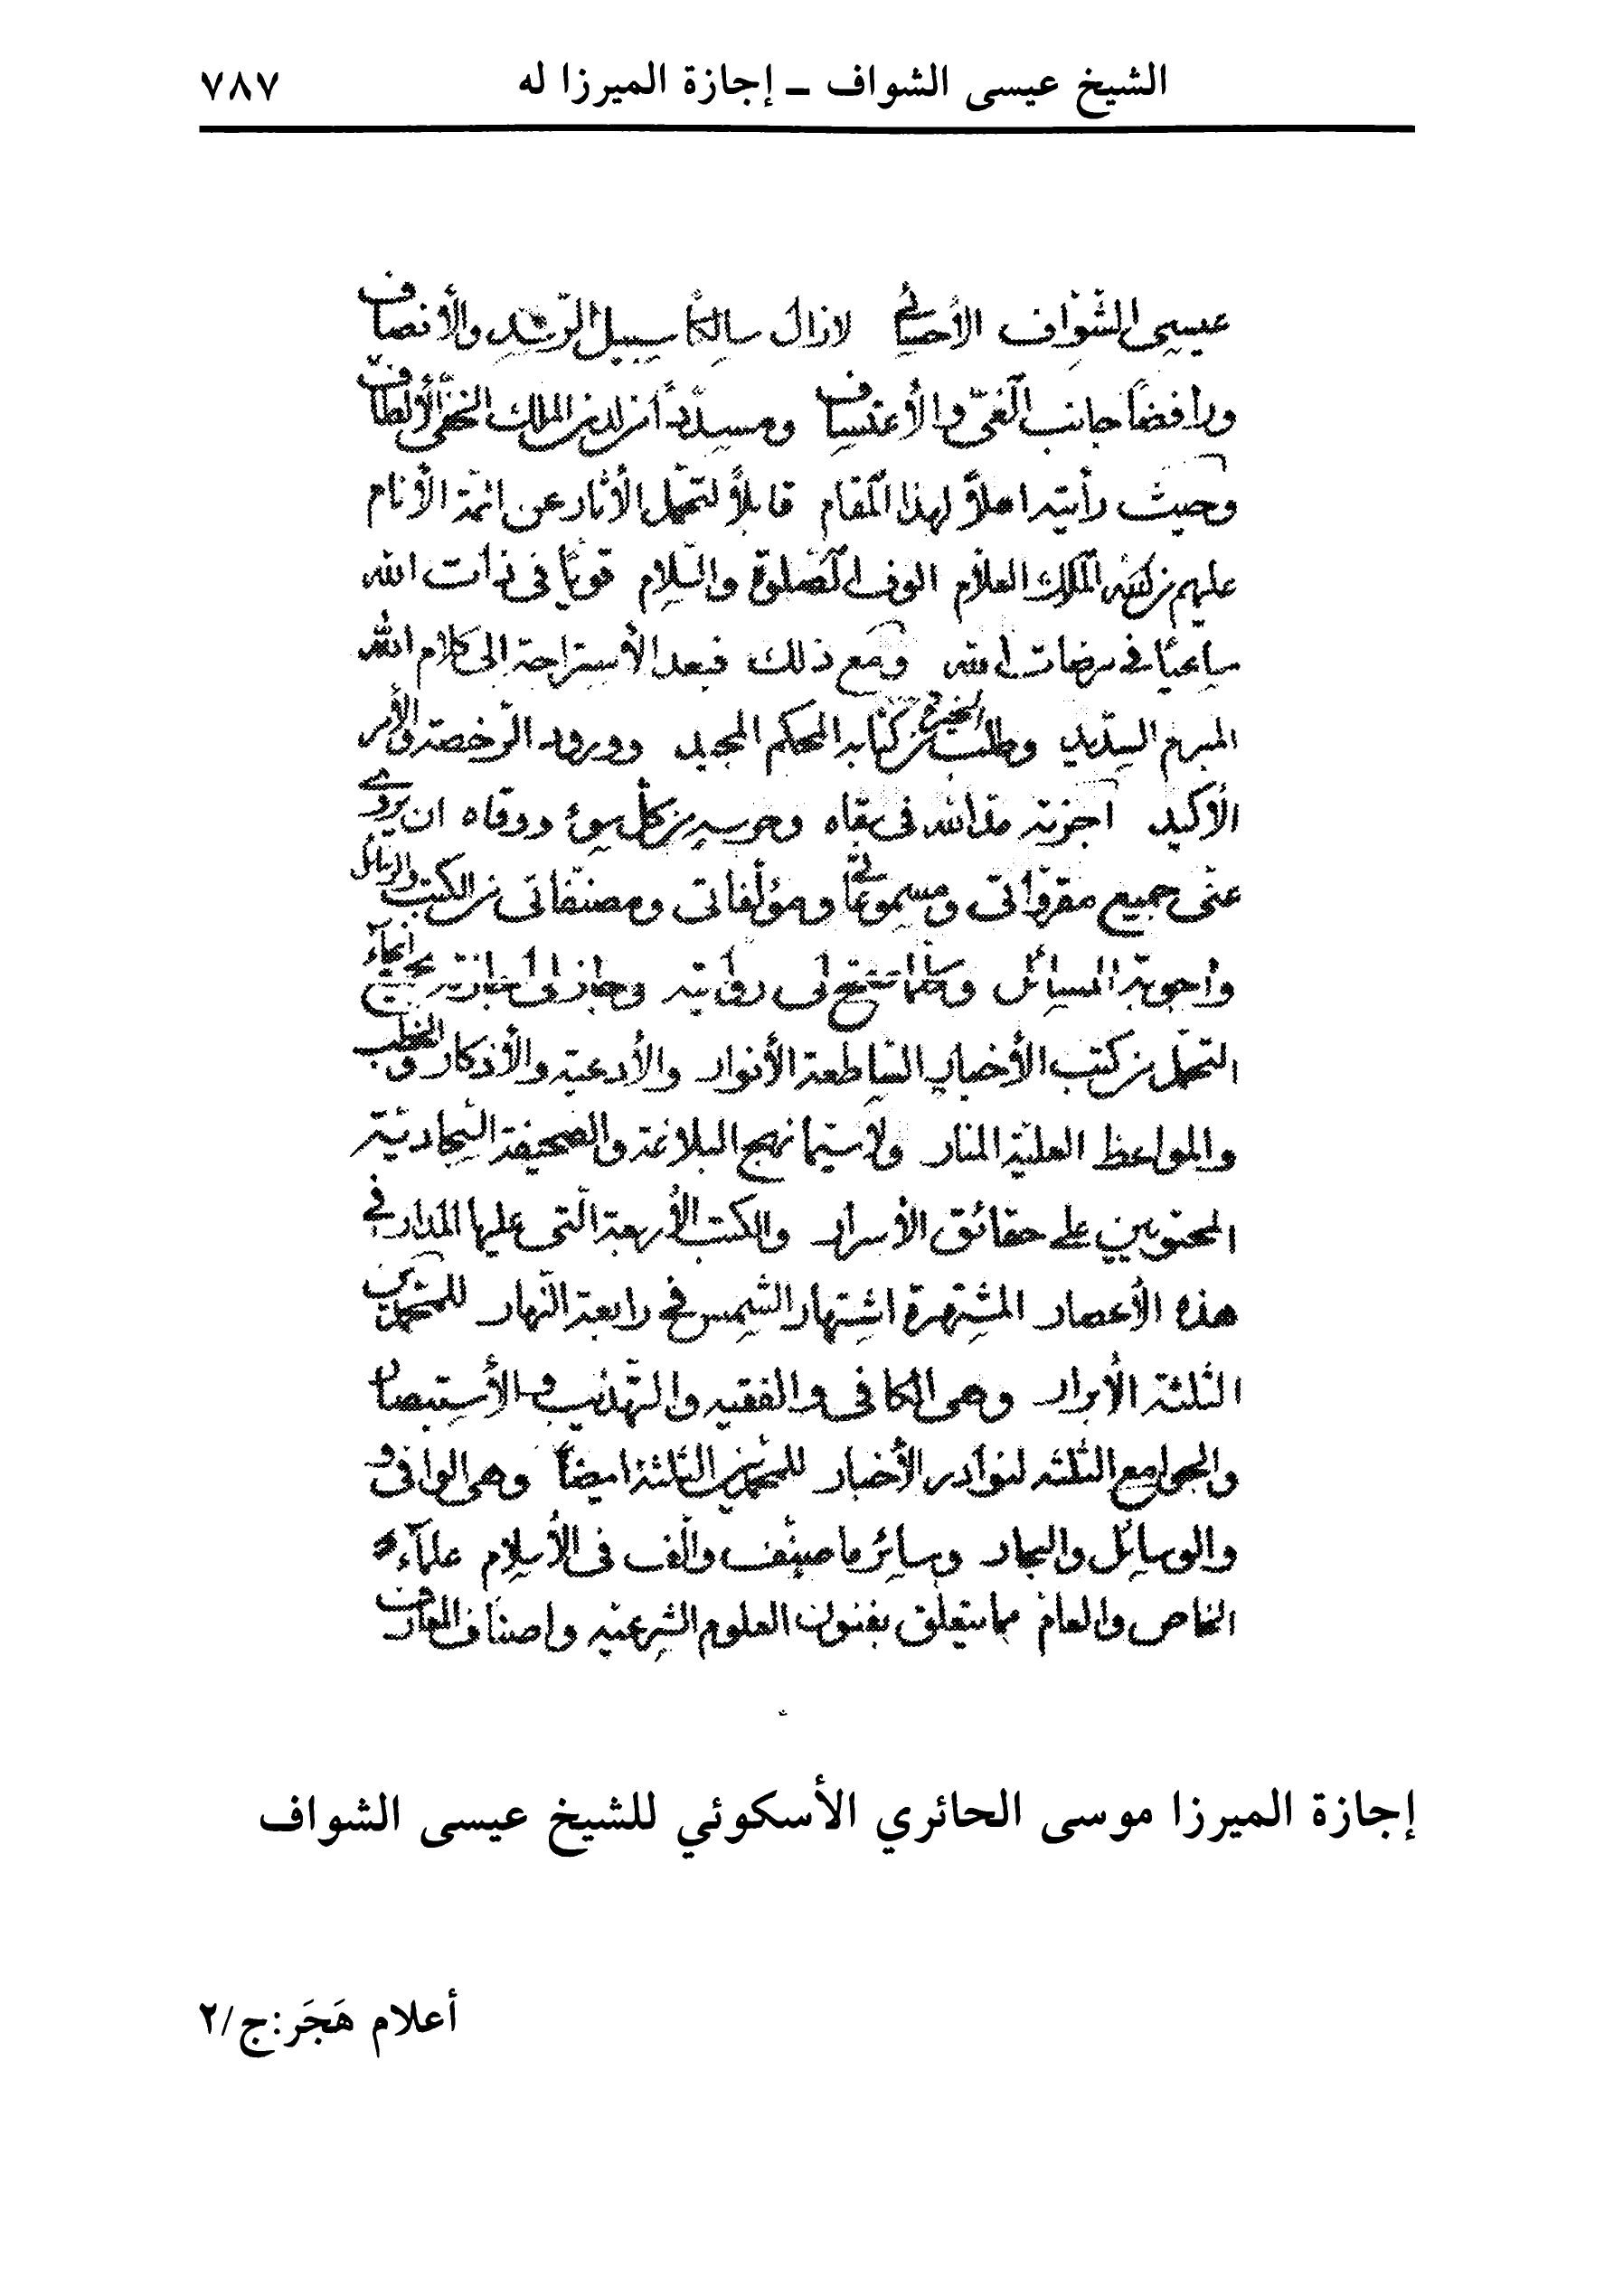 الشيخ عيسى الشواف ــ إجازة الميرزا له ٧٨٧
عيسى الشّواف الأحسائي لازال سالكاً سبيل الرّشد والأنصاف
ورافضاً جانب الغيّ والأعتساف ومسدّداً من لدن الملك الخفيّ الألطاف
وحيث رأيته اهلاً لهذا المقام قابلاً لتحمّل الأثار عن ائمّة الأنام
عليهم من الملك العلاّم الوف الصّلوة والسّلام قويّاً في ذات الله
ساعياً في مرضات الله ومع ذلك فبعد الأستراحة الى كلام الله
المبرم السّديد وطلب الخيرة من كتابه المحكم المجيد وورود الرّخصة والأمر
الأكيد اجزته مدّ الله في بقاه وحرسه من كلّ سوء ووقاه ان يروي
عنّى جميع مقروّاتى ومسموعاتي ومؤلّفاتى ومصنّفاتى من الكتب والرسائل
واجوبة المسائل وكلّما تصحّ لى روايته وجاز لى اجازته بجميع انحآء
التحمّل من كتب الأخبار السّاطعة الأنوار والأدعية والأذكار والخطب
والمواعظ العليّة المنار ولاسيّما نهج البلاغة والصحيفة السّجاديّة
المحتويين على حقائق الأسرار والكتب الأربعة الّتى عليها المدار في
هذه الأعصار المشتهرة اشتهار الشّمس في رابعة النّهار للمحمّدين
الثلثة الأبرار وهى الكافى والفقيه والتّهذيب والأستبصار
والجوامع الثلثه لنوادر الأخبار للمحمّدين الثّلثة ايضاً وهى الوافى
والوسائل والبحار وسائر ما صنّف والّف فى الأسلام علمآء
الخاص والعام مما يتعلّق بفنون العلوم الشّرعيّه واصناف المعارف
إجازة الميرزا موسى الحائري الأسكوئي للشيخ عيسى الشواف
أعلام هَجَر:ج/٢